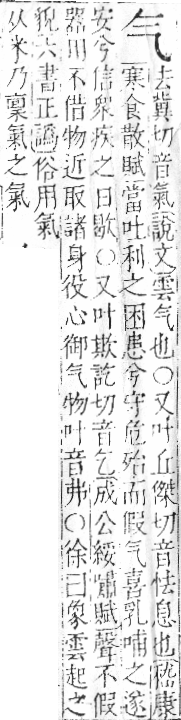 气去冀切音氣說文雲气也○又叶丘傑切音怯息也嵇康
寒食散賦當吐利之困患兮守危殆而假气喜乳哺之遂
安兮信衆疾之日歇○又叶欺訖切音乞成公綏嘯賦聲不假
器用不借物近取諸身役心御气物叶音弗○徐曰象雲起之
貌六書正譌俗用氣
从米乃稟氣之氣